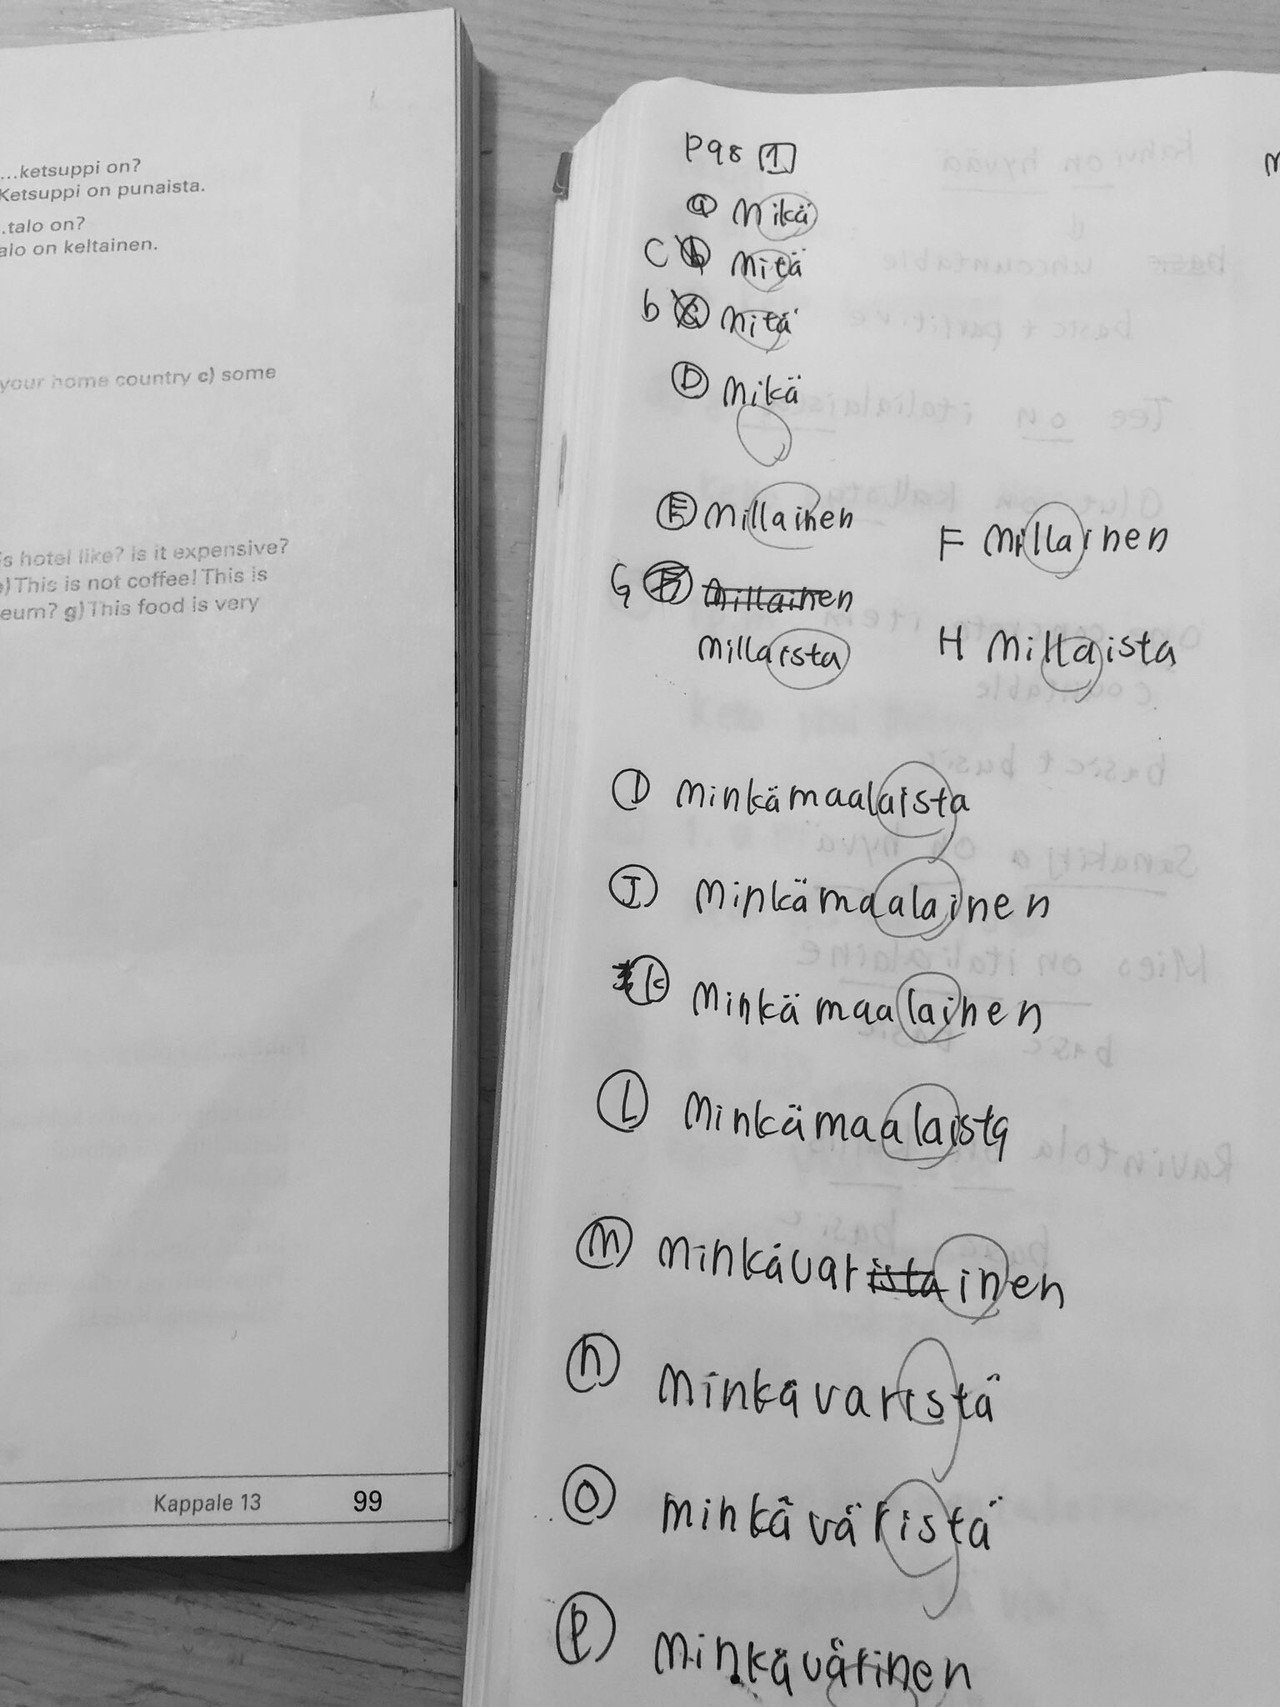 ...ketsuppi on?
Ketsuppi on punaista.
.talo on?
alo on keltainen.
your home country c) some
s hotel like? Is it expensive?
e) This is not coffee! This is
eum? g) This food is very
Kappale 13 99
P98 1
a Mikä
C b Mitä
b c Mitä
D Mikä
E Millainen
F Millainen
G F Millainen
Millaista
H Millaista
I Minkämaalaista
J Minkämaalainen
K Minkämaalainen
L Minkämaalaista
M Minkävaristainen
n Minkävaristä
O Minkäväristä
P Minkävärinen